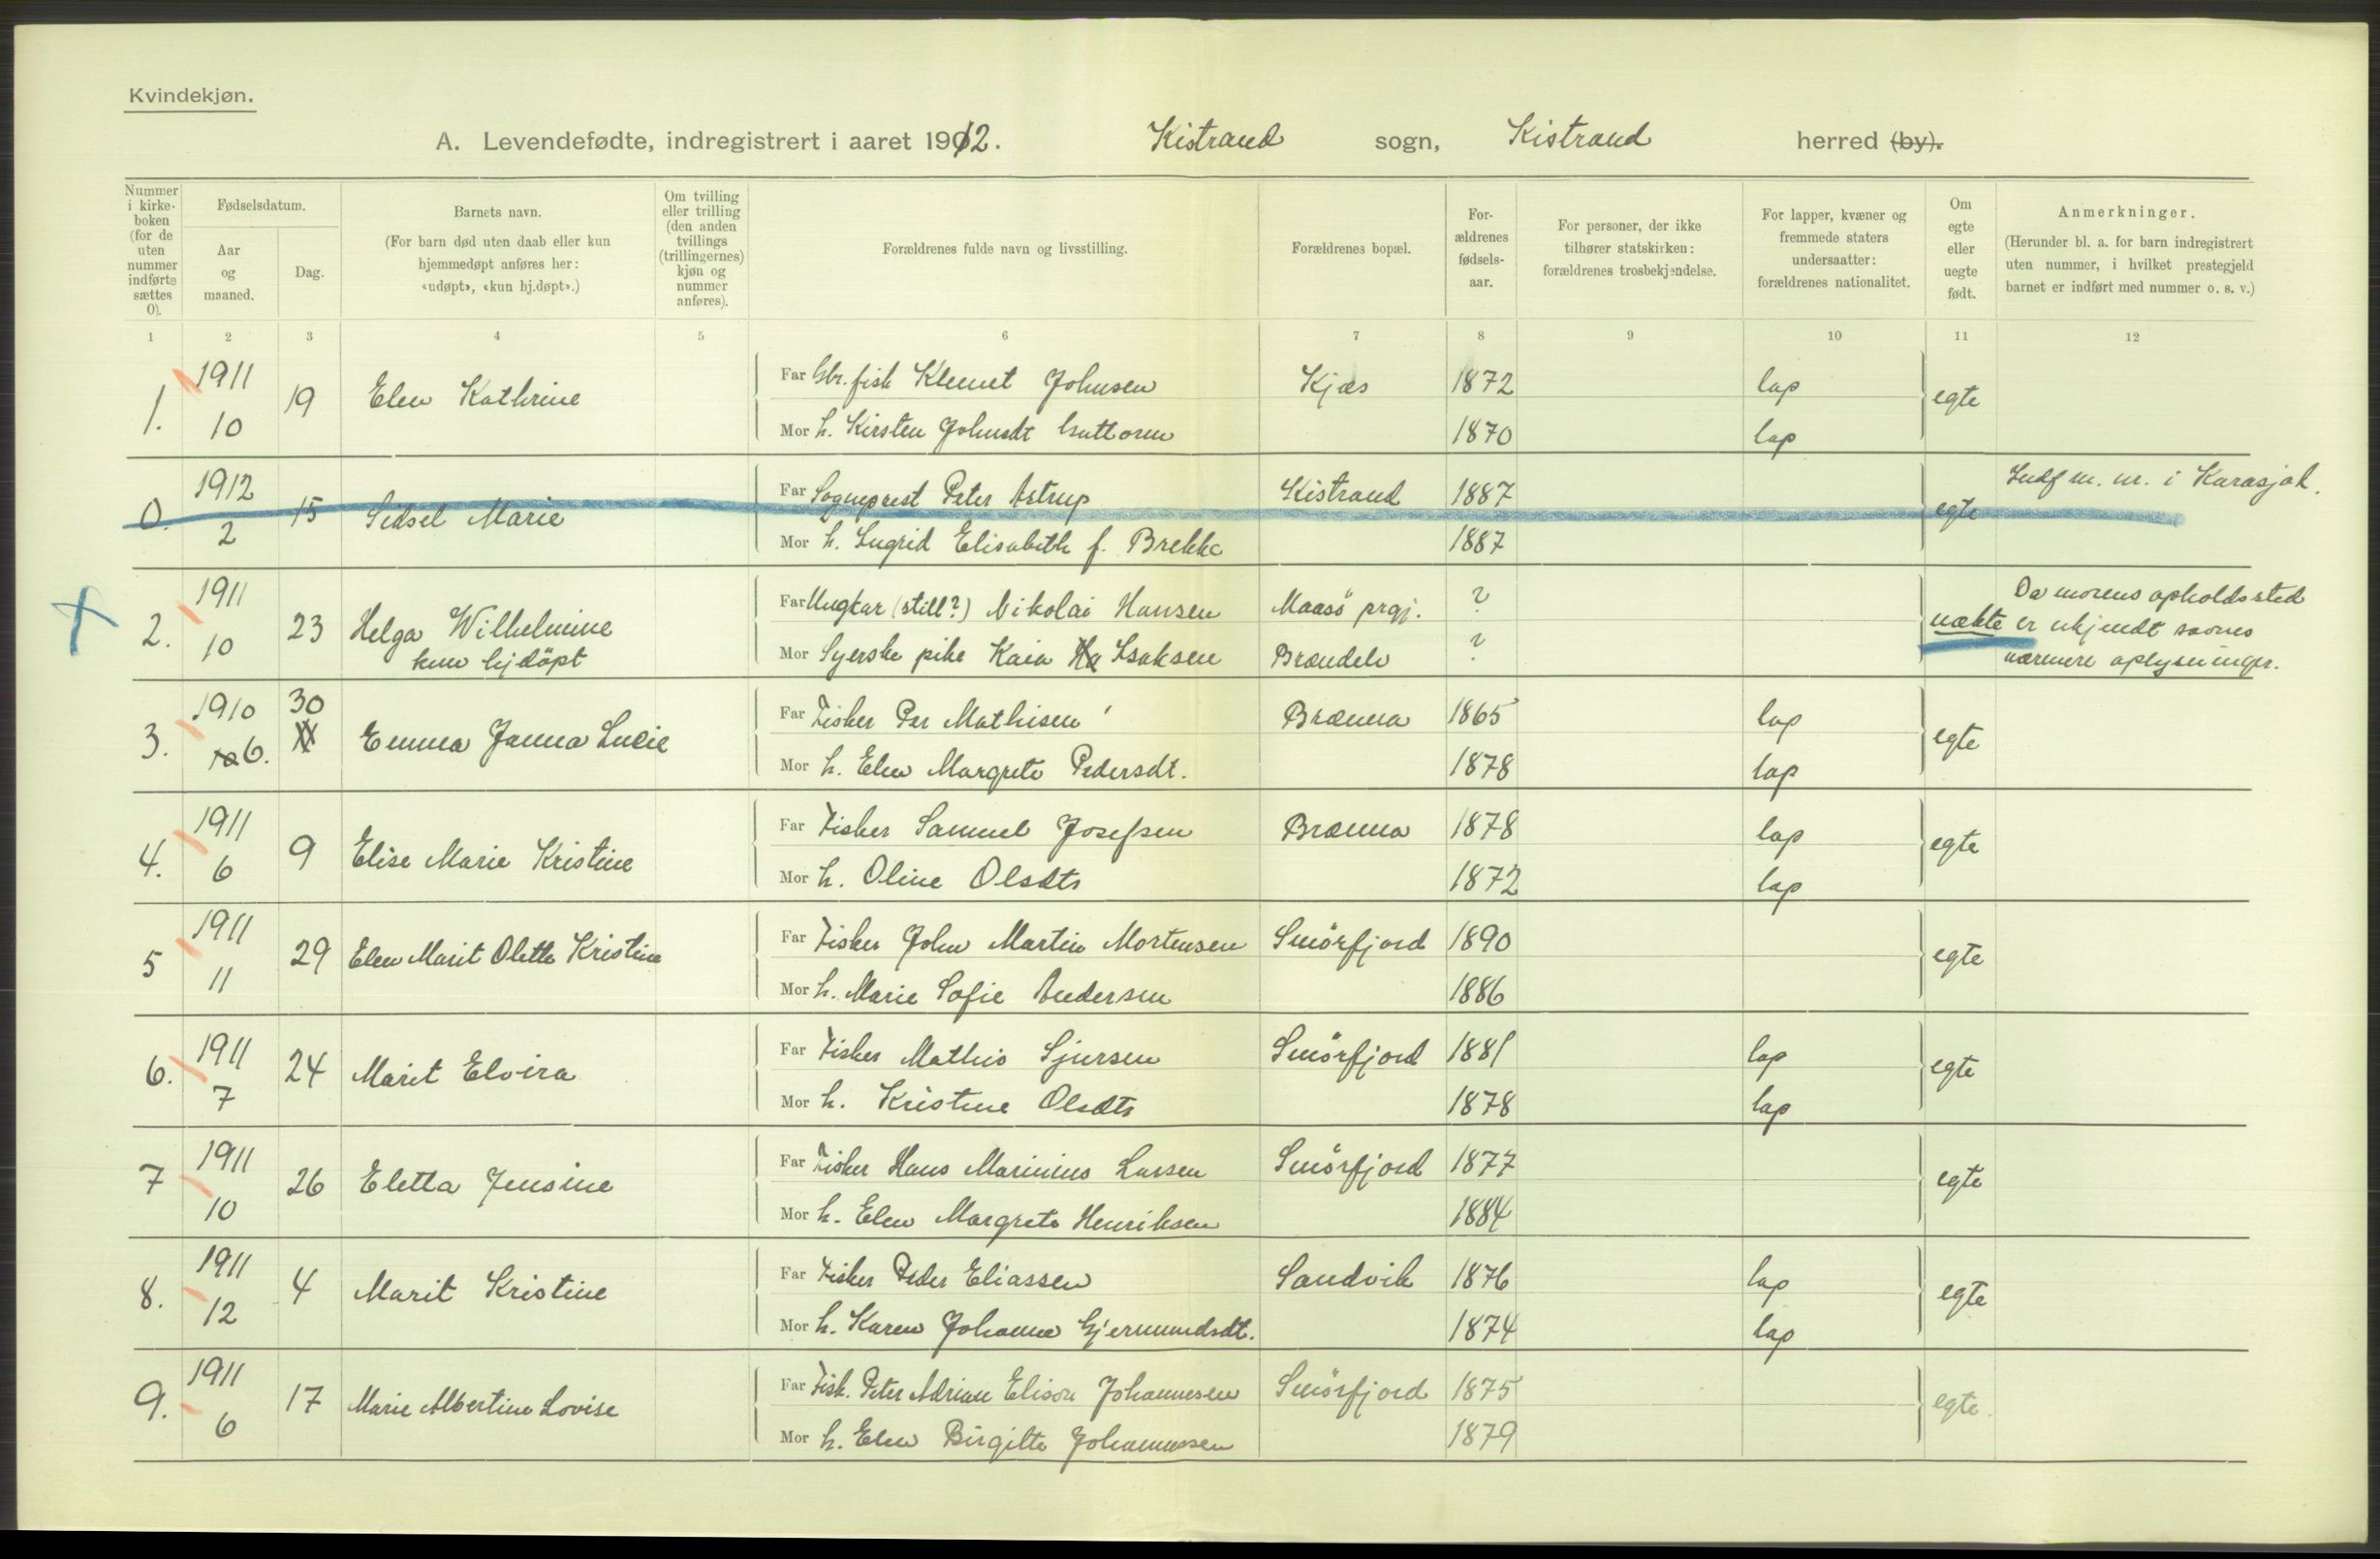 Kvindekjøn.
A. Levendefødte, indregistrert i aaret 1912. Kistrand sogn, Kistrand herred (by).
Nummer i kirkeboken (for de uten nummer indførte sættes 0).
Fødselsdatum.
Aar og maaned.
Dag.
Barnets navn.
(For barn død uten daab eller kun hjemmedøpt anføres her: «udøpt», «kun hj.døpt».)
Om tvilling eller trilling (den anden tvillings (trillingernes) kjøn og nummer anføres).
Forældrenes fulde navn og livsstilling.
Forældrenes bopæl.
Forældrenes fødselsaar.
For personer, der ikke tilhører statskirken: forældrenes trosbekjendelse.
For lapper, kvæner og fremmede staters undersaatter: forældrenes nationalitet.
Om egte eller uegte født.
Anmerkninger.
(Herunder bl. a. for barn indregistrert uten nummer, i hvilket prestegjeld barnet er indført med nummer o. s. v.)
1 2 3 4 5 6 7 8 9 10 11 12
1. 1911 10 19 Elen Kathrine
Far Gbr. fisk Klemet Johnsen Kjæs 1872 lap egte
Mor h. Kirsten Johnsdt Guttorm 1870 lap
0. 1912 2 15 Sidsel Marie
Far Sogneprest Peter Astrup Kistrand 1887 egte Indf m. nr. i Karasjok.
Mor h. Ingrid Elisabeth f. Brekke 1887
2. 1911 10 23 Helga Wilhelmine
kun hjdöpt
Far Ungkar (still?) Nikolai Hansen Maasö prgj. ?
Mor Syerske pike Kaia Isaksen Brændelv ?
uækte
Da morens opholdssted
er ukjendt savnes
nærmere oplysninger.
3. 1910 6. 30 Emma Janna Lucie
Far Fisker Per Mathisen Brænna 1865 lap egte
Mor h. Elen Margrete Pedersdt. 1878 lap
4. 1911 6 9 Elise Marie Kristine
Far Fisker Samuel Josefsen Brænna 1878 lap egte
Mor h. Oline Olsdtr 1872 lap
5 1911 11 29 Elen Marit Olette Kristine
Far Fisker John Martin Mortensen Smörfjord 1890 egte
Mor h. Marie Sofie Andersen 1886
6. 1911 7 24 Marit Elvira
Far Fisker Mathis Sjursen Smörfjord 1881 lap egte
Mor h. Kristine Olsdtr 1878 lap
7 1911 10 26 Eletta Jensine
Far Fisker Hans Marinius Larsen Smörfjord 1877 egte
Mor h. Elen Margrete Henriksen 1884
8. 1911 12 4 Marit Kristine
Far Fisker Peder Eliassen Sandvik 1876 lap egte
Mor h. Karen Johanne Gjermundsdt. 1874 lap
9. 1911 6 17 Marie Albertine Lovise
Far Fisk. Peter Adrian Elison Johannesen Smörfjord 1875 egte.
Mor h. Elen Birgitte Johannessen 1879